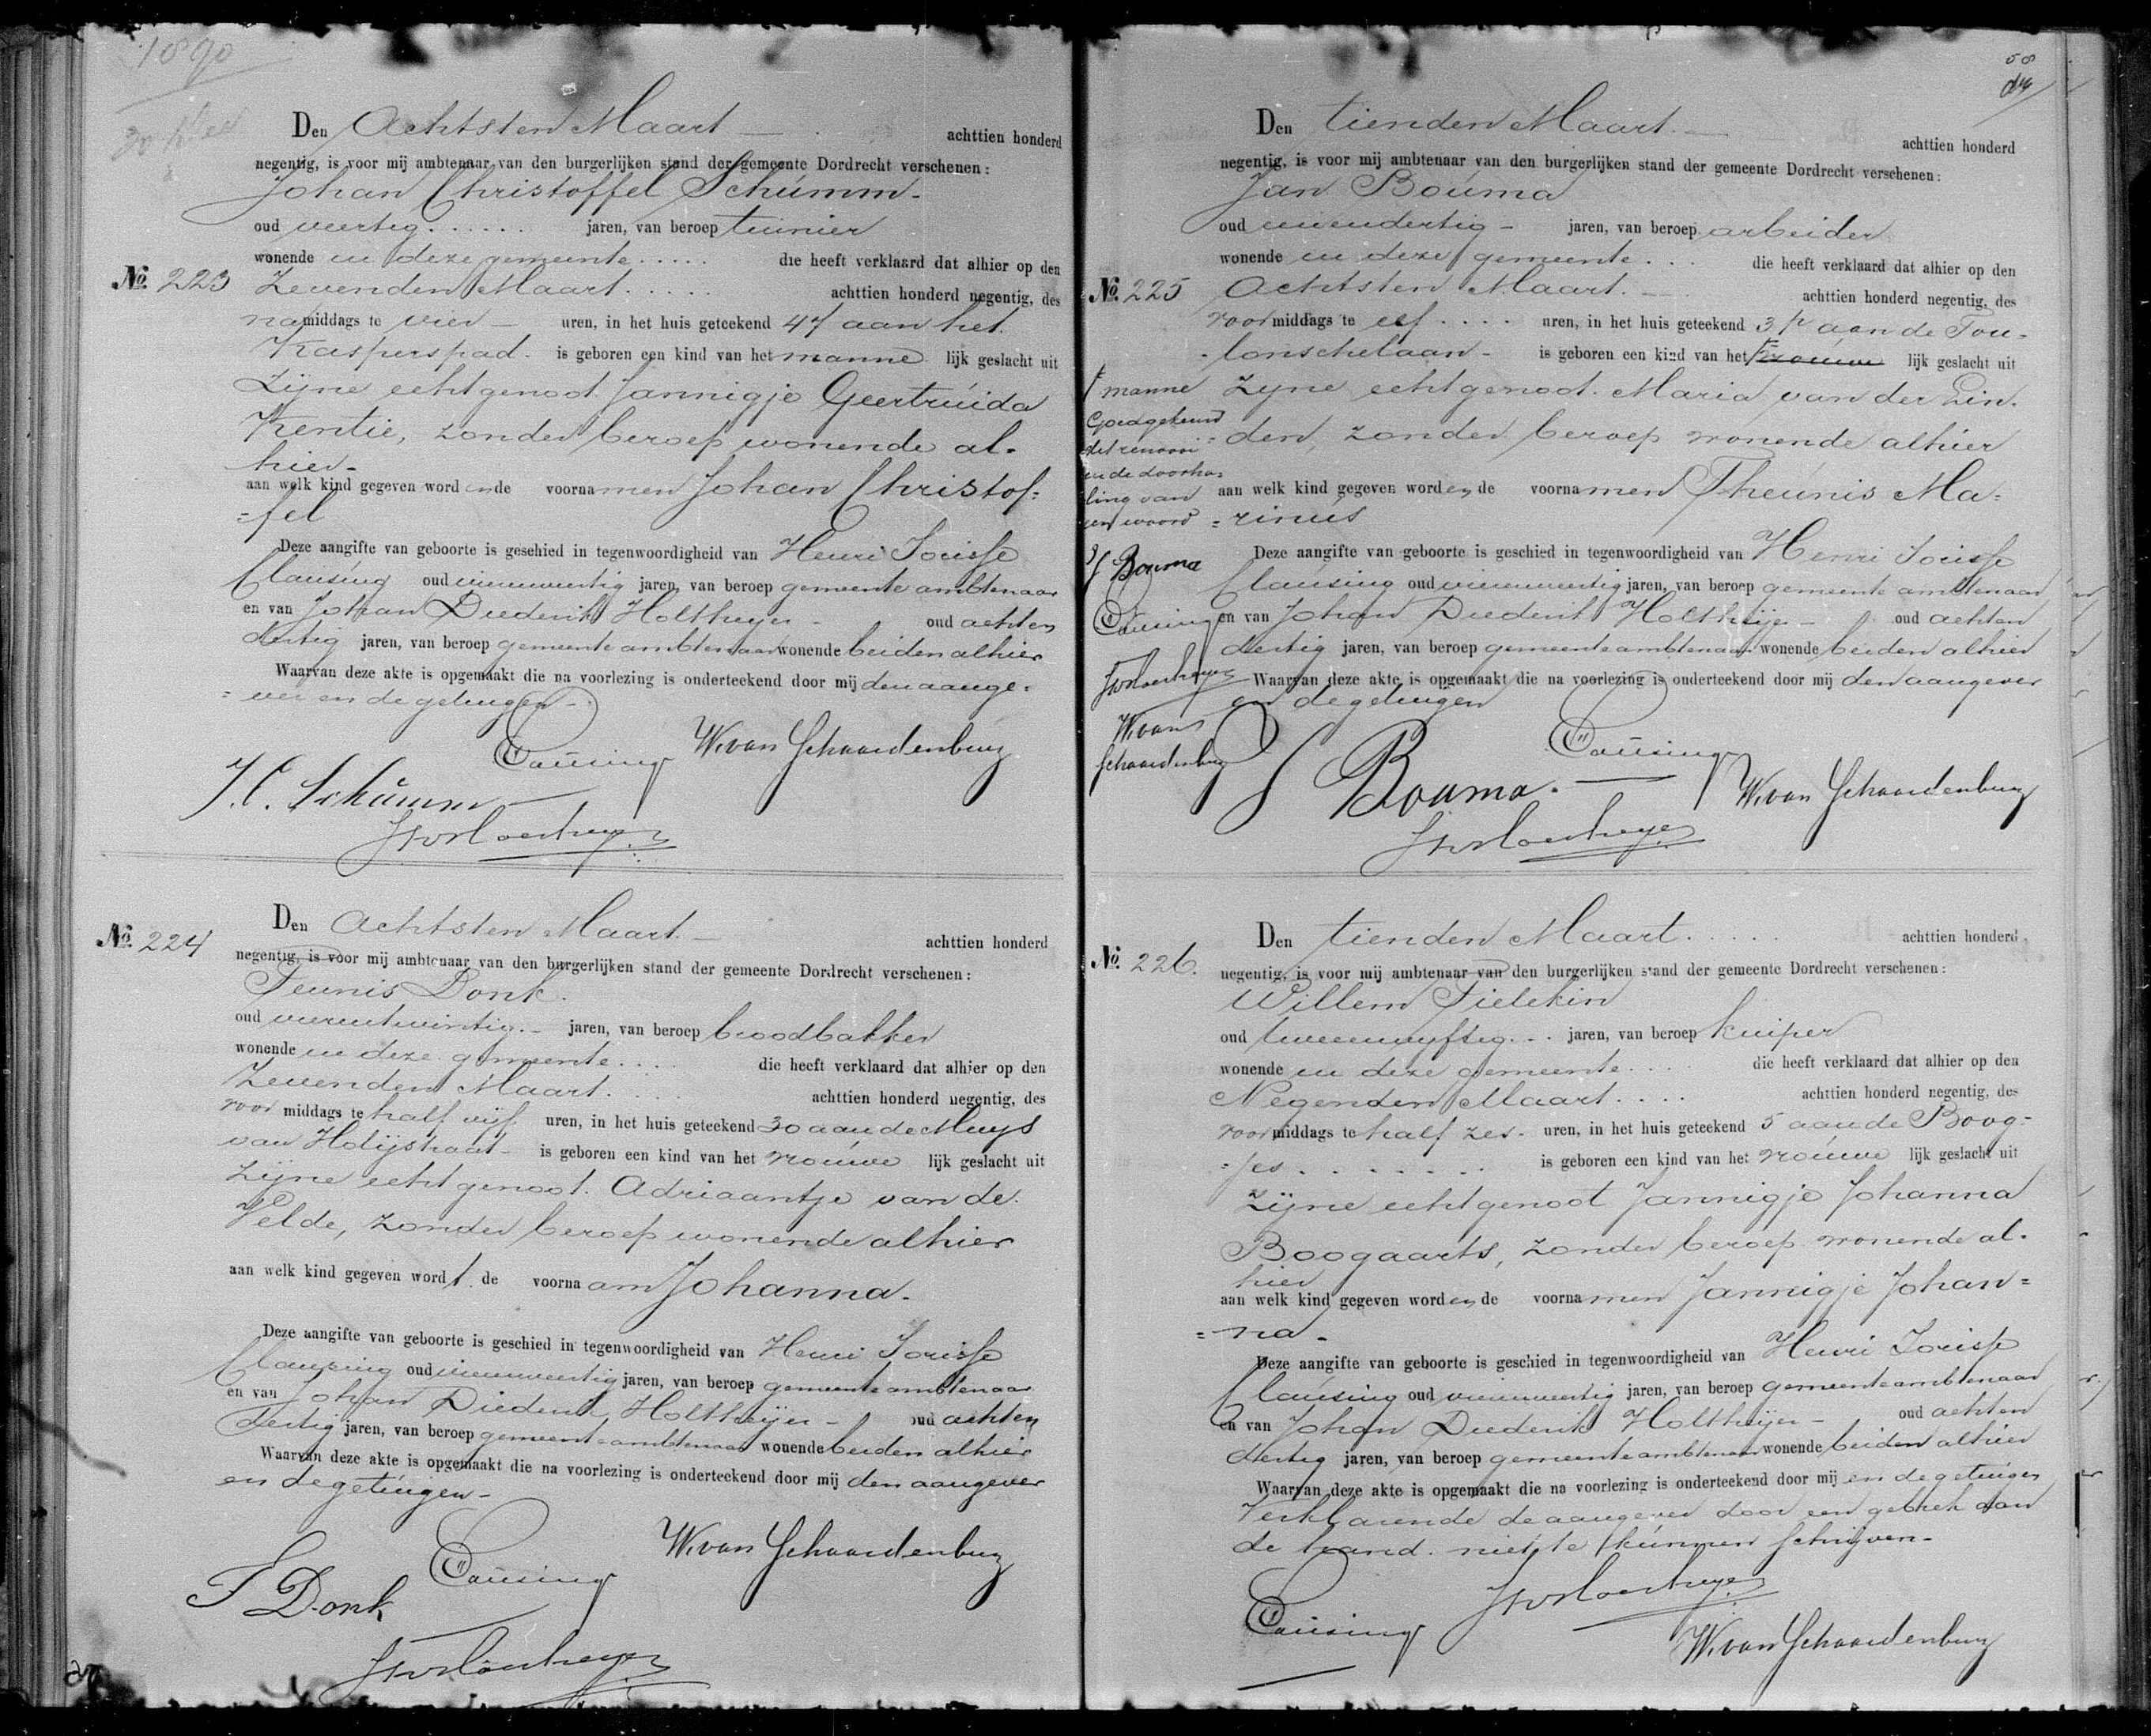 1890
Den Achtsten Maart achttien honderd
negentig, is voor mij ambtenaar van den burgerlijken stand der gemeente Dordrecht verschenen:
Johan Christoffel Schumm
oud veertig jaren, van beroep tuinier
wonende in deze gemeente die heeft verklaard dat alhier op den
No. 223 Zevenden Maart achttien honderd negentig, des
namiddags te vier uren, in het huis geteekend 47 aan het
Kasperspad is geboren een kind van het mannelijk geslacht uit
Zijne echtgenoot Jannigje Geertruida
Krentie, zonder beroep wonende al-
hier
aan welk kind gegeven worden de voornamen Johan Christof=
=fel
Deze aangifte van geboorte is geschied in tegenwoordigheid van Henri Jorisse
Clausing oud vierenveertig jaren, van beroep gemeente ambtenaar
en van Johan Diederik Holtheijer oud achten
dertig jaren, van beroep gemeente ambtenaar wonende beiden alhier
Waarvan deze akte is opgemaakt die na voorlezing is onderteekend door mij den aange=
=ver en de getuigen
Clausing W. van Schaardenburg
J.C. Schumm
No. 224 Den Achtsten Maart achttien honderd
negentig, is voor mij ambtenaar van den burgerlijken stand der gemeente Dordrecht verschenen:
Teunis Donk.
oud vierentwintig jaren, van beroep broodbakker
wonende in deze gemeente die heeft verklaard dat alhier op den
Zevenden Maart achttien honderd negentig, des
voormiddags te half vijf uren, in het huis geteekend 30 aan de Muys
van Holijstraat is geboren een kind van het vrouwelijk geslacht uit
zijne echtgenoot Adriaantje van de
Velde, zonder beroep wonende alhier
aan welk kind gegeven wordt de voornaam Johanna.
Deze aangifte van geboorte is geschied in tegenwoordigheid van Henri Jorisse
Clausing oud vierenveertig jaren, van beroep gemeente ambtenaar
en van Johan Diederik Holtheijer oud achten
dertig jaren, van beroep gemeente ambtenaar wonende beiden alhier
Waarvan deze akte is opgemaakt die na voorlezing is onderteekend door mij den aangever
en de getuigen
Clausing W. van Schaardenburg
T Donk
58
Den tienden Maart achttien honderd
negentig, is voor mij ambtenaar van den burgerlijken stand der gemeente Dordrecht verschenen:
Jan Bouma
oud eenendertig jaren, van beroep arbeider
wonende in deze gemeente die heeft verklaard dat alhier op den
No. 225 Achtsten Maart achttien honderd negentig, des
voormiddags te elf uren, in het huis geteekend 3p aan de Tou-
lonschelaan is geboren een kind van het vrouwe lijk geslacht uit
manne Zyne echtgenoot Maria van der Lin-
Goedgekeurd
den, zonder beroep wonende alhier
het renvooi
en de doorha=
ling van aan welk kind gegeven worden de voornamen Theunis Ma=
een woord =rinus
Deze aangifte van geboorte is geschied in tegenwoordigheid van Henri Jorisse
J Bouma Clausing oud vierenveertig jaren, van beroep gemeente ambtenaar
Clausing en van Johan Diederik Holtheijer oud achten
dertig jaren, van beroep gemeente ambtenaar wonende beiden alhier
Waarvan deze akte is opgemaakt die na voorlezing is onderteekend door mij den aangever
en de getuigen
W. van
Schaardenburg
Clausing
J Bouma. W. van Schaardenburg
Den tienden Maart achttien honderd
No. 226. negentig, is voor mij ambtenaar van den burgerlijken stand der gemeente Dordrecht verschenen:
Willem Tielekin
oud tweeenvyftig jaren, van beroep kuiper
wonende in deze gemeente die heeft verklaard dat alhier op den
Negenden Maart achttien honderd negentig, des
voormiddags te half zes uren, in het huis geteekend 5 aan de Boog=
=jes is geboren een kind van het vrouwelijk geslacht uit
zijne echtgenoot Jannigje Johanna
Boogaarts, zonder beroep wonende al-
hier
aan welk kind gegeven worden de voornamen Jannigje Johan=
=na
Deze aangifte van geboorte is geschied in tegenwoordigheid van Henri Jorisse
Clausing oud vierenveertig jaren, van beroep gemeente ambtenaar
en van Johan Diederik Holtheijer oud achten
dertig jaren, van beroep gemeente ambtenaar wonende beiden alhier
Waarvan deze akte is opgemaakt die na voorlezing is onderteekend door mij en de getuigen
Verklarende de aangever door een gebrek aan
de hand niet te kunnen schrijven
Clausing
W. van Schaardenburg